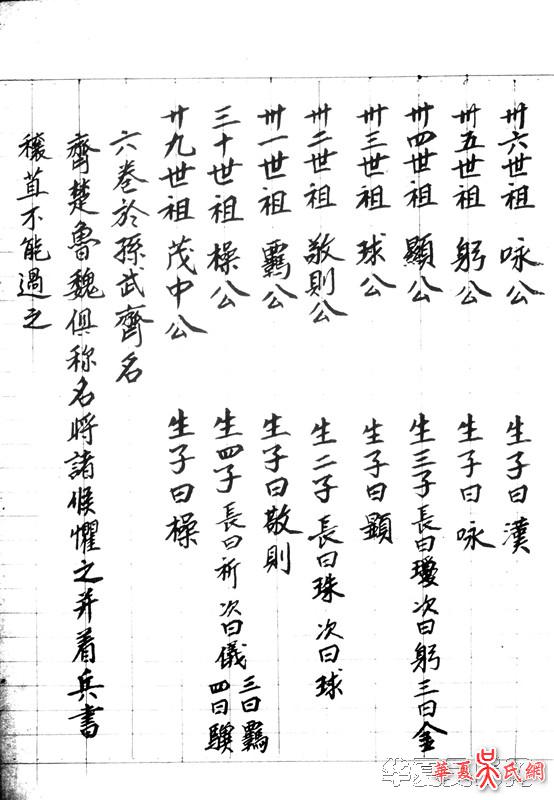 穰苴不能過之
齊楚魯魏俱称名将諸候懼之并着兵書
六卷於孫武齊名
廿九世祖 茂中公 生子曰橾
三十世祖 橾公 生四子 長曰祈 次曰儀 三曰覊 四曰
卅一世祖 覊公 生子曰敬則
卅二世祖 敬則公 生二子 長曰珠 次曰球
卅三世祖 球公 生子曰顯
卅四世祖 顯公 生三子長曰瓊次曰躬三曰金
卅五世祖 躬公 生子曰咏
卅六世祖 咏公 生子曰漢
華夏吴氏網